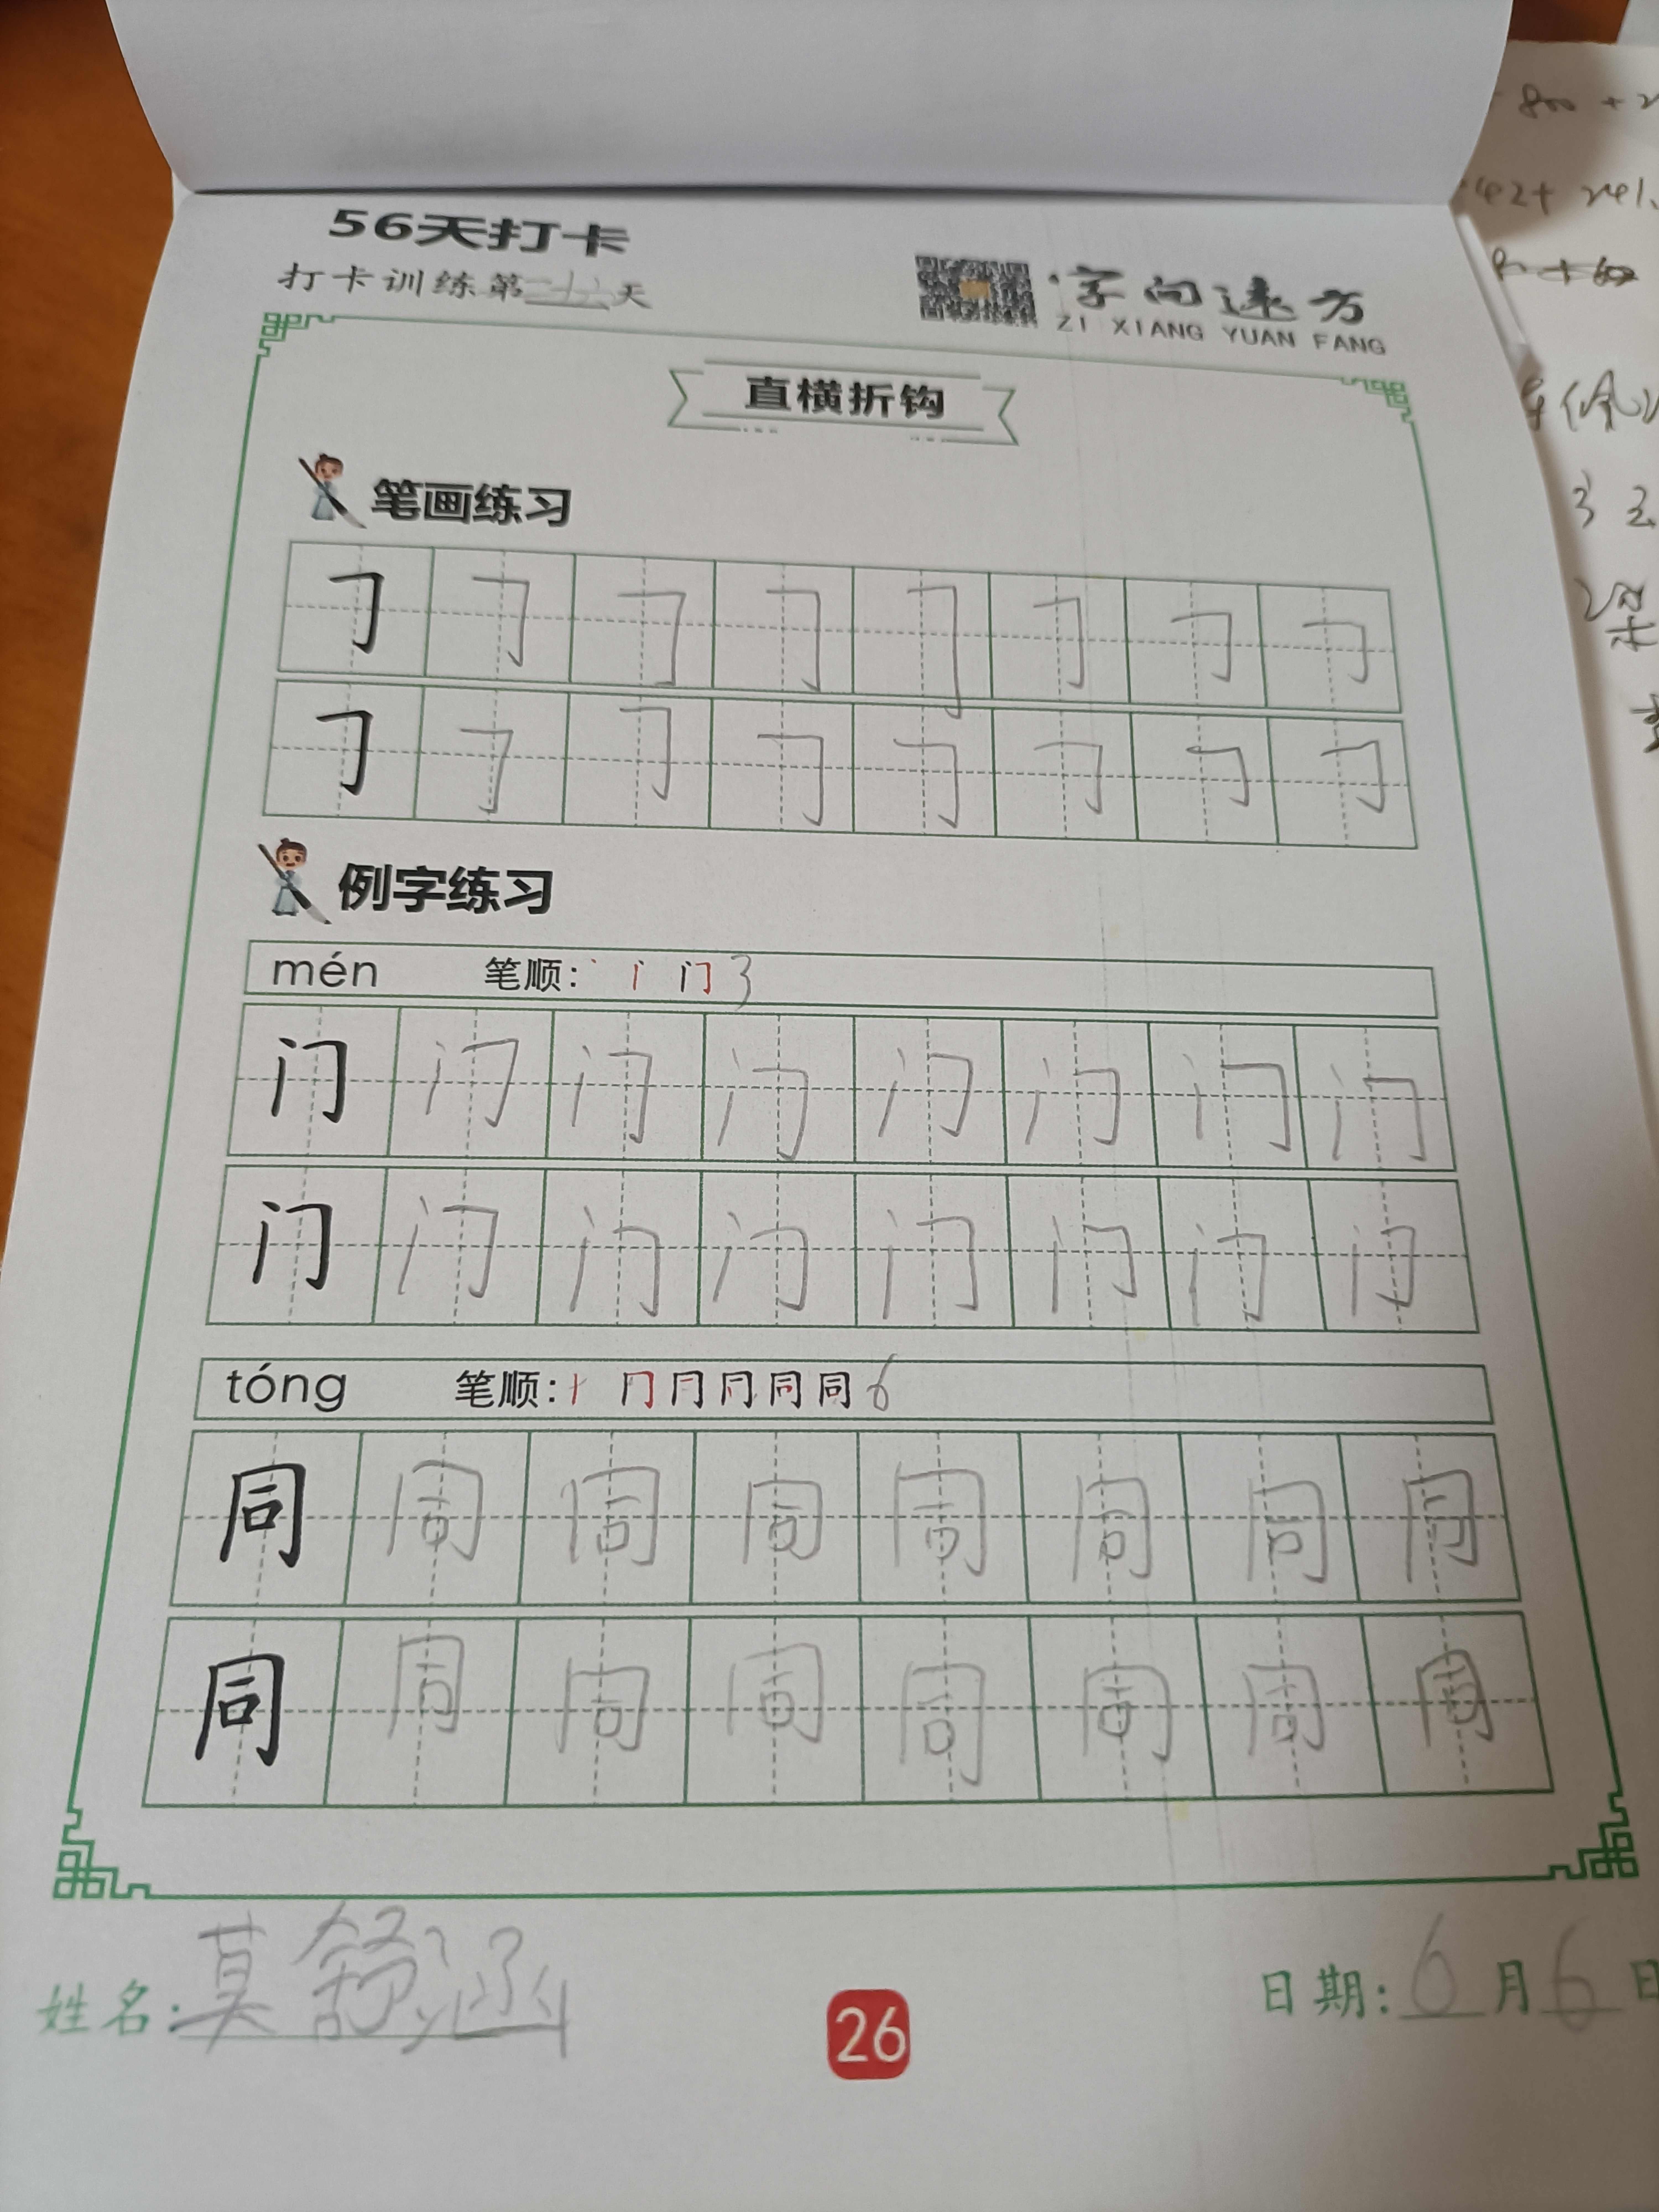 56天打卡
打卡训练第二十六天
字向远方
ZI XIANG YUAN FANG
直横折钩
笔画练习
㇆ ㇆ ㇆ ㇆ ㇆ ㇆ ㇆ ㇆
㇆ ㇆ ㇆ ㇆ ㇆ ㇆ ㇆ ㇆
例字练习
mén 笔顺: 门 3
门 门 门 门 门 门 门 门
门 门 门 门 门 门 门 门
tóng 笔顺: 同 6
同 同 同 同 同 同 同 同
同 同 同 同 同 同 同 同
姓名: 莫舒涵
26
日期: 6月6日